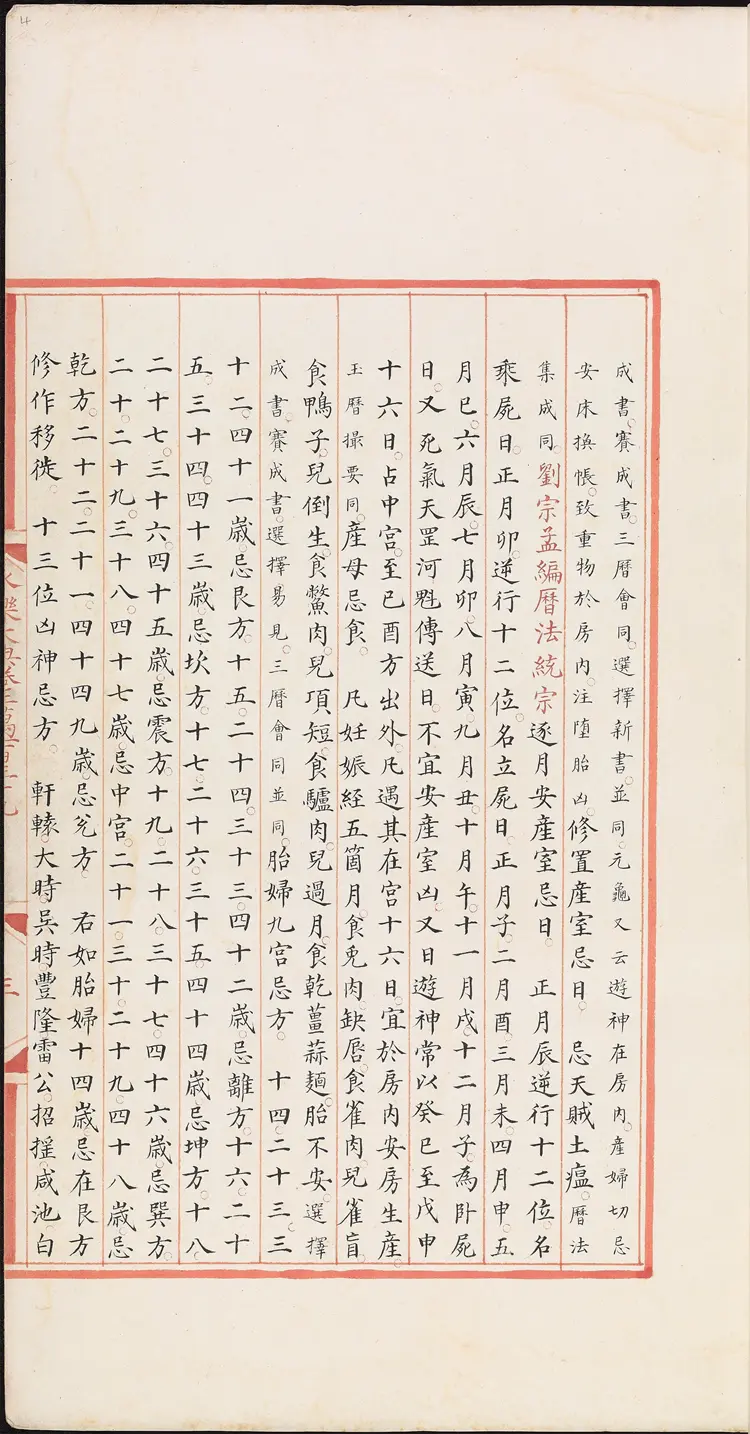 成書。賽成書。三曆會同。選擇新書。並同。元龜又云遊神在房內。產婦切忌
安床換帳。致重物於房內。注堕胎凶。修置產室忌日。 忌天賊土瘟。曆法
集成同。劉宗孟編曆法統宗逐月安產室忌日。 正月辰逆行十二位。名
乘屍日。正月卯。逆行十二位。名立屍日。正月子。二月酉。三月未。四月申。五
月巳。六月辰。七月卯。八月寅。九月丑。十月午。十一月戌。十二月子。為卧屍
日。又死氣天罡河魁傳送日。不宜安產室凶。又日遊神常以癸巳至戊申
十六日。占中宮。至己酉方出外。凡遇其在宮十六日。宜於房內安房生產。
玉曆撮要同。產母忌食。 凡妊娠經五箇月。食兎肉缺唇。食雀肉。兒雀盲。
食鴨子。兒倒生。食鱉肉。兒項短。食驢肉。兒過月。食乾薑蒜麵。胎不安。選擇
成書。賽成書。選擇易見。三曆會同並同。胎婦九宮忌方。 十四。二十三。三
十二。四十一歲。忌艮方。十五。二十四。三十三。四十二歲。忌離方。十六。二十
五。三十四。四十三歲。忌坎方。十七。二十六。三十五。四十四歲。忌坤方。十八。
二十七。三十六。四十五歲。忌震方。十九。二十八。三十七。四十六歲。忌巽方。
二十。二十九。三十八。四十七歲。忌中宮。二十一。三十。二十九。四十八歲。忌
乾方。二十二。二十一。四十四九歲。忌兌方。 右如胎婦十四歲。忌在艮方
修作移徙。 十三位凶神忌方。 軒轅。大時。吳時。豐隆。雷公。招搖。咸池。白
三
4